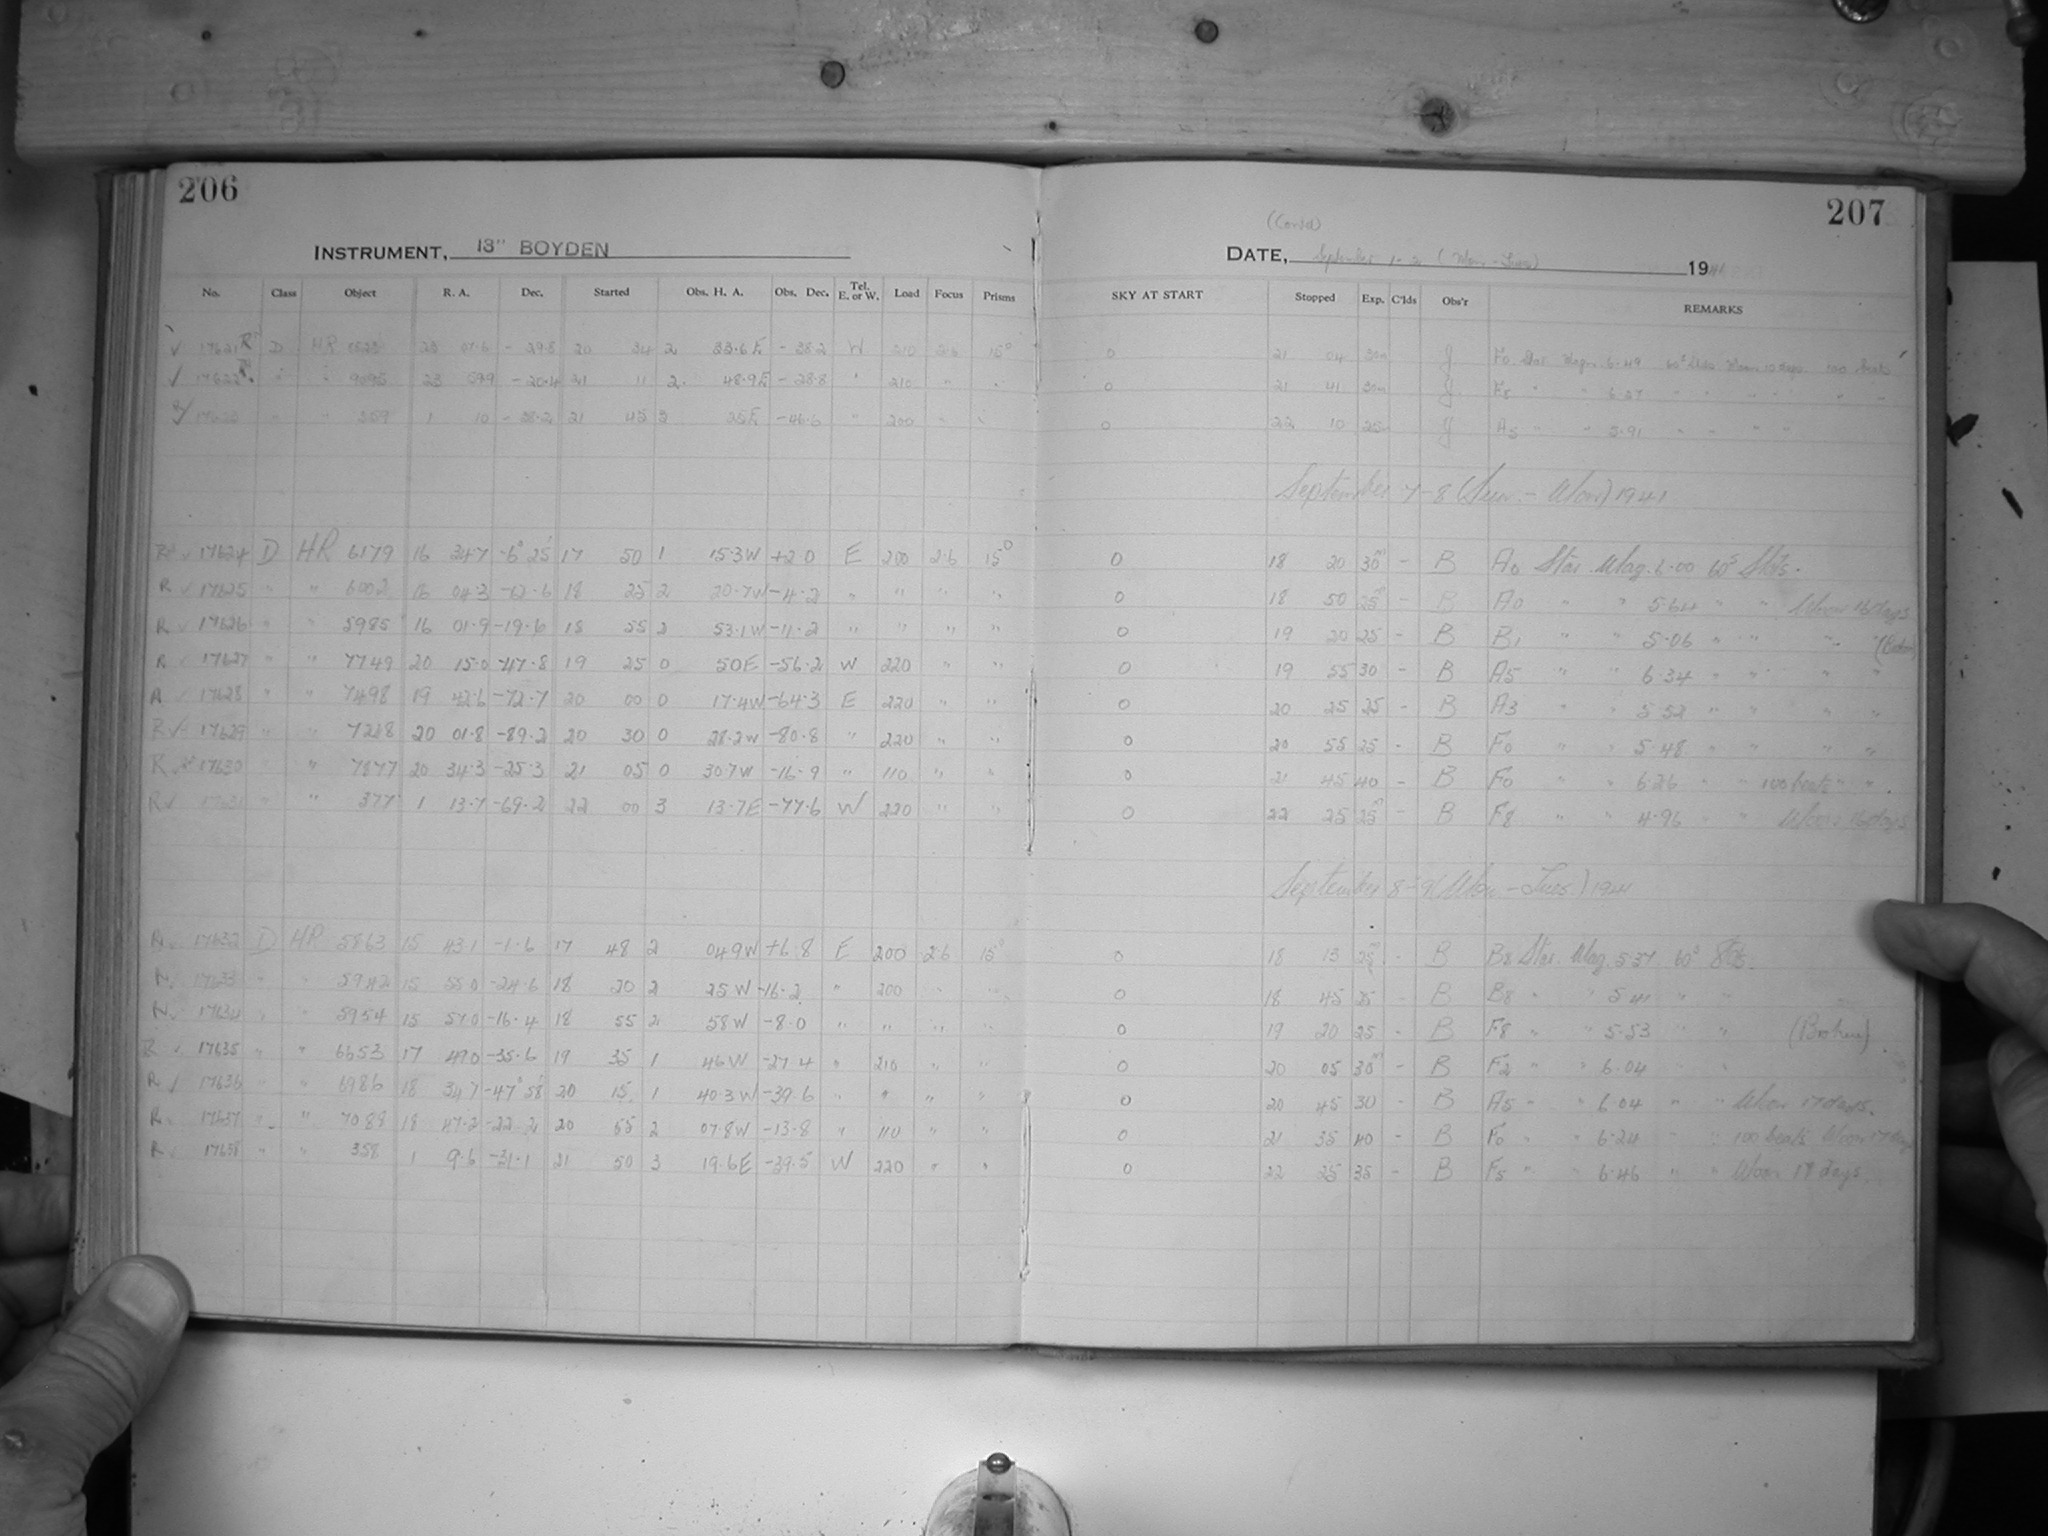 206
207
INSTRUMENT, 13" BOYDEN
(Contd)
DATE, September 1-2 (Mon - Tues) 1941
No. Class Object R. A. Dec. Started Obs. H. A. Obs. Dec. Tel. E. or W. Load Focus Prisms SKY AT START Stopped Exp. C'lds Obs'r REMARKS
17621 D HR 23 01.6 - 29.8 20 34 2 33.6E - 38.2 W 210 2.6 15° 0 21 04 30m J F0 Star Magn. 6.49 60s Slats Moon 10 days 100 beats
17622 " " 9095 23 59.9 - 20.4 21 11 2 48.9E - 28.8 " 210 " " 0 21 41 30m J F8 " " 6.27 " " " " " "
" " 359 1 10 - 38.2 21 45 3 25E - 46.6 " 200 " " 0 22 10 25m J A5 " " 5.91 " " " "
September 7-8 (Sun. - Mon) 1941
R ✓ 17624 D HR 6179 16 34.7 -6° 25' 17 50 1 15.3W +2.0 E 200 2.6 15° 0 18 20 30m - B A0 Star. Mag. 6.00 60s Slats.
R ✓ 17625 " " 6002 16 04.3 -12.6 18 25 2 20.7W -4.2 " " " " 0 18 50 25m - B A0 " " 5.64 " " Moon 16 days
R ✓ 17626 " " 5985 16 01.9 -19.6 18 55 2 53.1W -11.2 " " " " 0 19 20 25 - B B1 " " 5.06 " " " " (Broken)
R 17627 " " 7749 20 15.0 -47.8 19 25 0 50E -56.2 W 220 " " 0 19 55 30 - B A5 " " 6.34 " " " "
17628 " " 7498 19 42.6 -72.7 20 00 0 17.4W -64.3 E 220 " " 0 20 25 25 - B A3 " " 5.52 " " " "
R ✓ 17629 " " 7228 20 01.8 -89.2 20 30 0 28.2W -80.8 " 220 " " 0 20 55 25 - B F0 " " 5.48 " " " "
R ✓ 17630 " " 7877 20 34.3 -25.3 21 05 0 30.7W -16.9 " 110 " " 0 21 45 40 - B F0 " " 6.26 " " 100 beats " "
R ✓ 17631 " " 377 1 13.7 -69.2 22 00 3 13.7E -77.6 W 220 " " 0 22 25 25m - B F8 " " 4.96 " " Moon 16 days
September 8-9 (Mon - Tues) 1941
17632 D HR 5863 15 43.1 -1.6 17 48 2 04.9W +6.8 E 200 2.6 15° 0 18 13 25m - B B8 Star. Mag. 5.37 60s Slats.
17633 " " 5942 15 55.0 -24.6 18 20 2 25W -16.2 " 200 " " 0 18 45 25 - B B8 " " 5.41 " "
17634 " " 5954 15 57.0 -16.4 18 55 2 58W -8.0 " " " " 0 19 20 25 - B F8 " " 5.53 " " (Broken)
R ✓ 17635 " " 6653 17 49.0 -35.6 19 35 1 46W -27.4 " 210 " " 0 20 05 30m - B F2 " " 6.04 " "
R ✓ 17636 " " 6986 18 34.7 -47° 58' 20 15 1 40.3W -39.6 " " " " 0 20 45 30 - B A5 " " 6.04 " " Moon 17 days.
R 17637 " " 7089 18 47.2 -22.2 20 55 2 07.8W -13.8 " 110 " " 0 21 35 40 - B F0 " " 6.24 " " 100 beats Moon 17 days
R 17638 " " 358 1 9.6 -31.1 21 50 3 19.6E -39.5 W 220 " " 0 22 25 35 - B F5 " " 6.46 " " Moon 17 days.